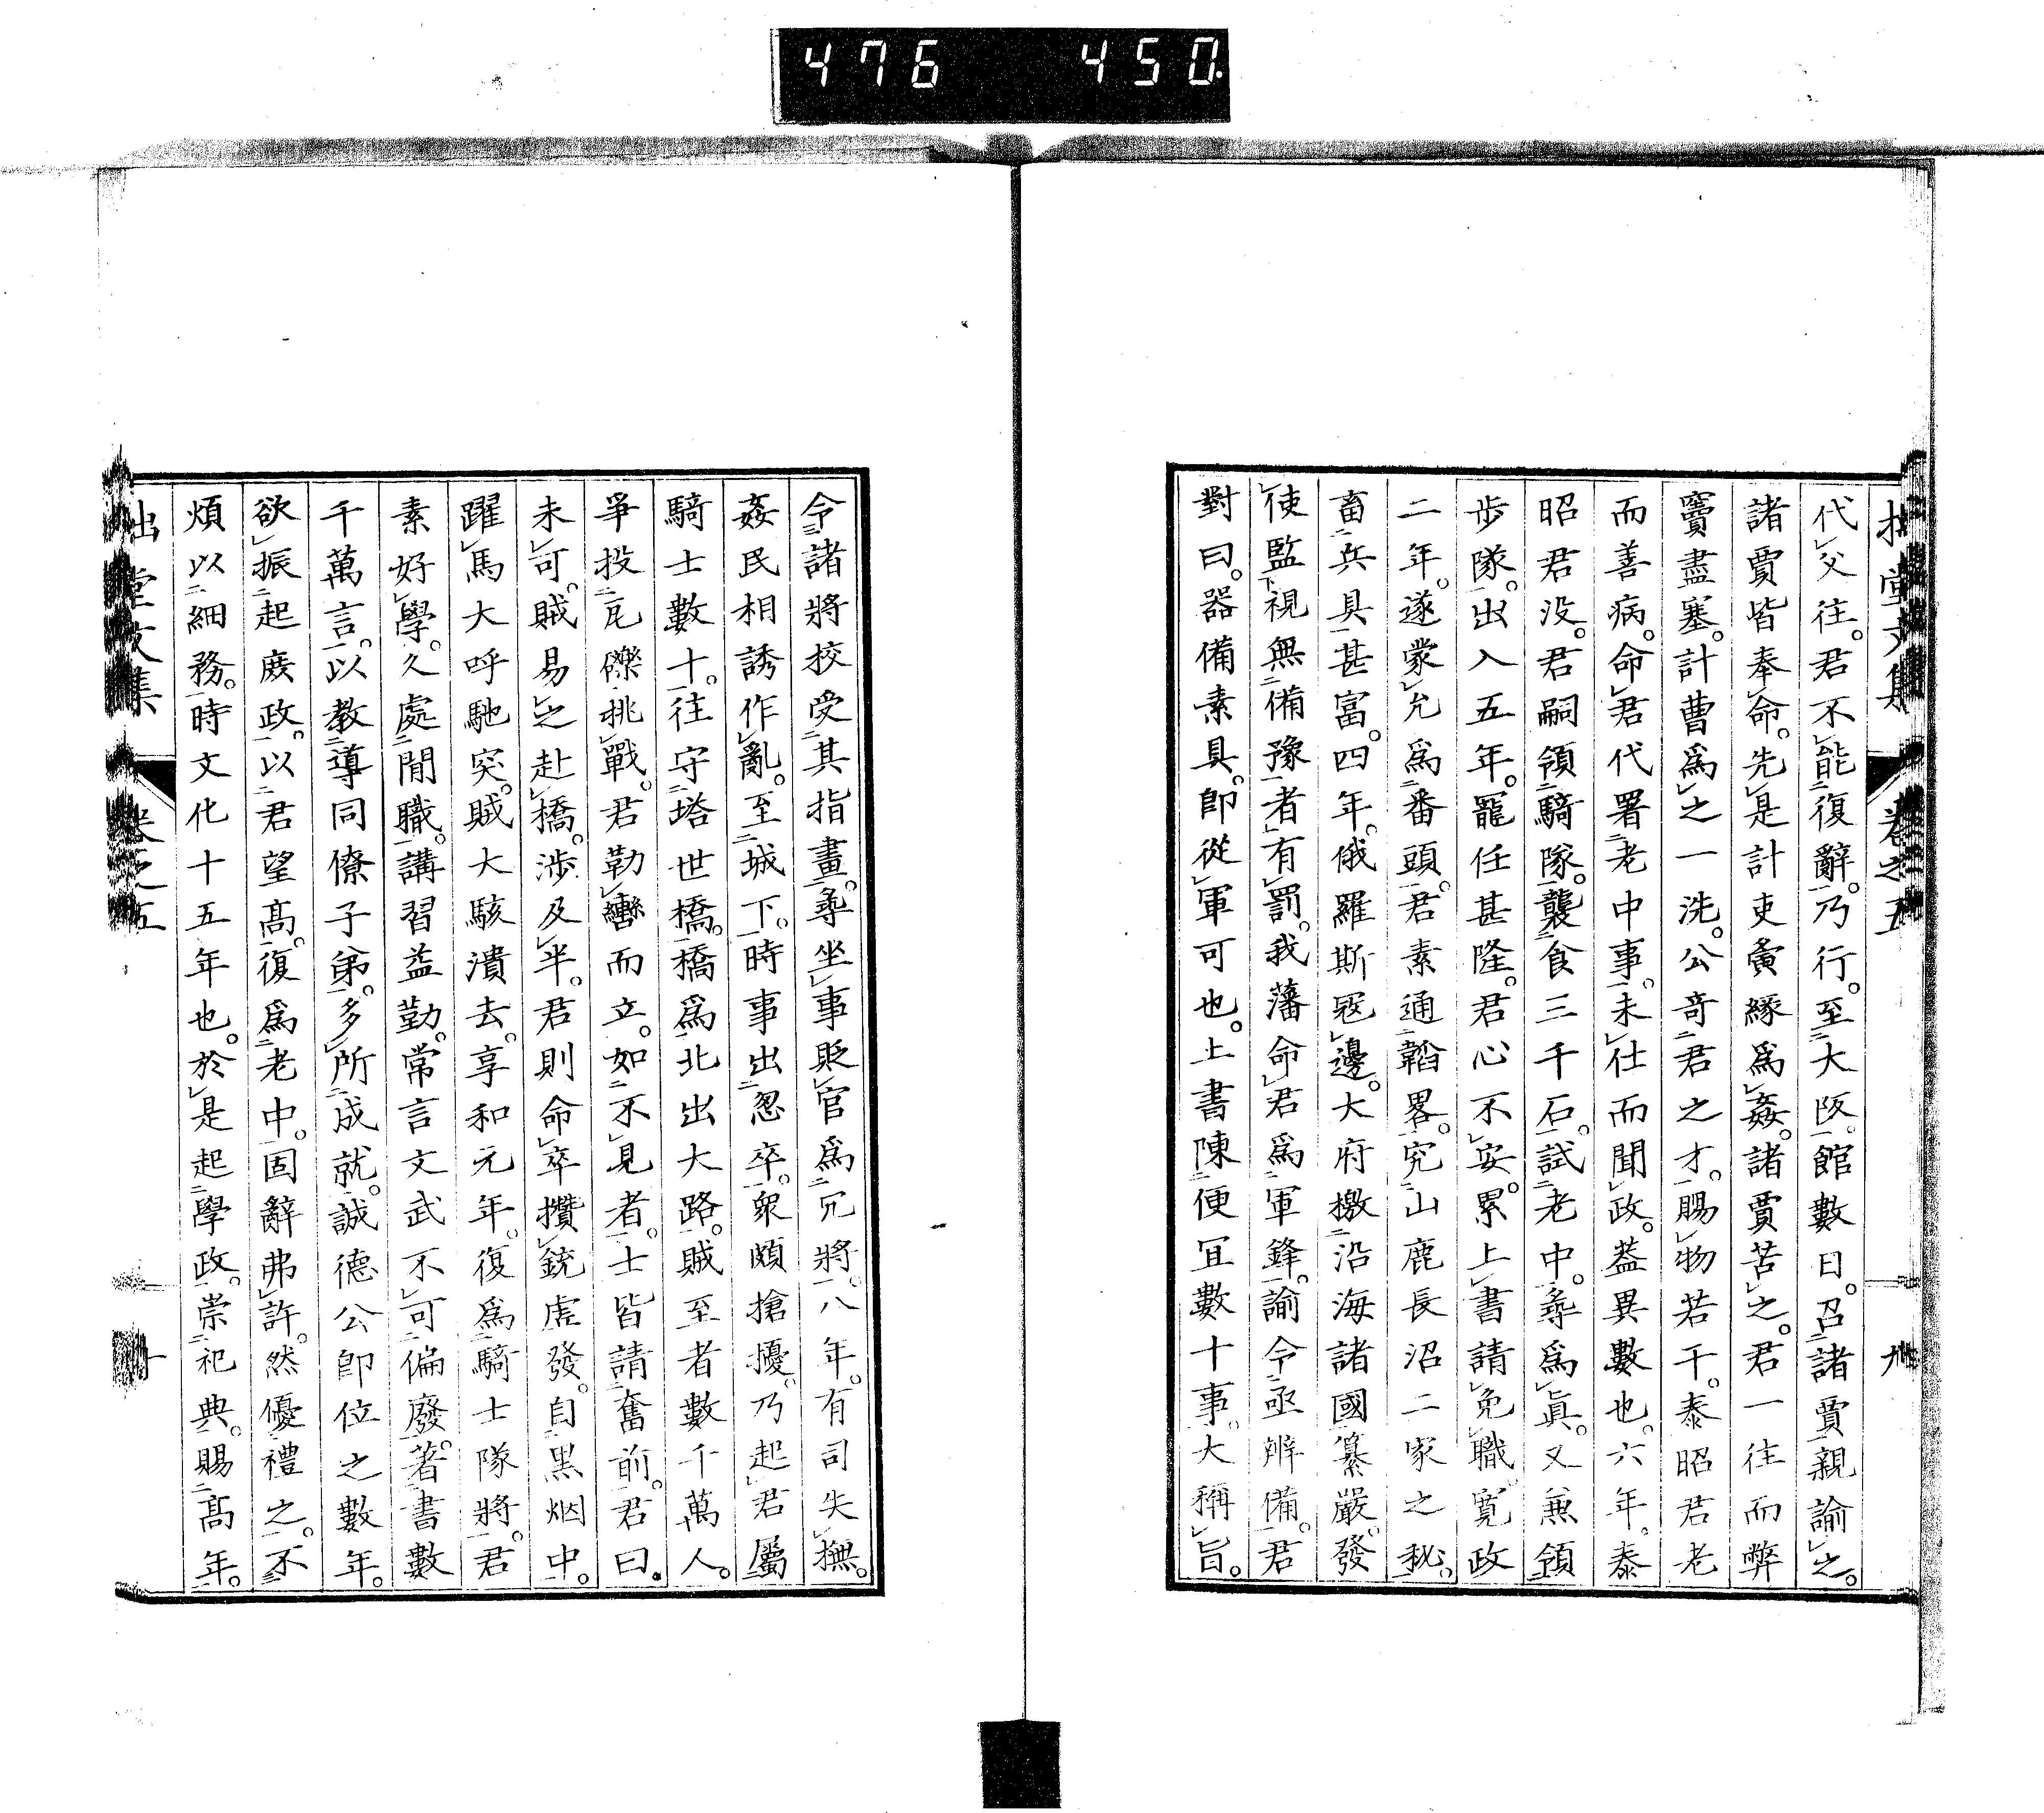 476 450
代父往。君不能復辭。乃行。至大阪。館數日。召諸賈親諭之。
諸賈皆奉命。先是計吏夤緣爲姦。諸賈苦之。君一往而弊
竇盡塞。計曹爲之一洗。公奇君之才。賜物若干。泰昭君老
而善病。命君代署老中事。未仕而聞政。葢異數也。六年。泰
昭君没。君嗣領騎隊。襲食三千石。試老中。尋爲眞。又兼領
步隊。出入五年。寵任甚隆。君心不安。累上書請免職。寬政
二年。遂蒙允爲番頭。君素通韜畧。究山鹿長沼二家之秘。
畜兵具甚富。四年。俄羅斯冦邊。大府檄沿海諸國纂嚴。發
使監視無備豫者有罰。我藩命君爲軍鋒。諭令亟辨備。君
對曰。器備素具。卽從軍可也。上書陳便宜數十事。大稱旨。
卷之五
九
令諸將挍受其指畫。尋坐事貶官爲冗將。八年。有司失撫。
姦民相誘作亂。至城下。時事出忽卒。衆頗搶擾。乃起君屬
騎士數十。往守塔世橋。橋爲北出大路。賊至者數千萬人。
爭投瓦礫挑戰。君勒轡而立。如不見者。士皆請奮前。君曰。
未可。賊易之赴橋。涉及半。君則命卒攢銃虛發。自黑烟中。
躍馬大呼馳突。賊大駭潰去。享和元年。復爲騎士隊將。君
素好學。久處閒職。講習益勤。常言文武不可偏廢。著書數
千萬言。以教導同僚子弟。多所成就。誠德公卽位之數年。
欲振起庻政。以君望高。復爲老中。固辭弗許。然優禮之。不
煩以細務。時文化十五年也。於是起學政。崇祀典。賜高年。
堂文集
卷之五